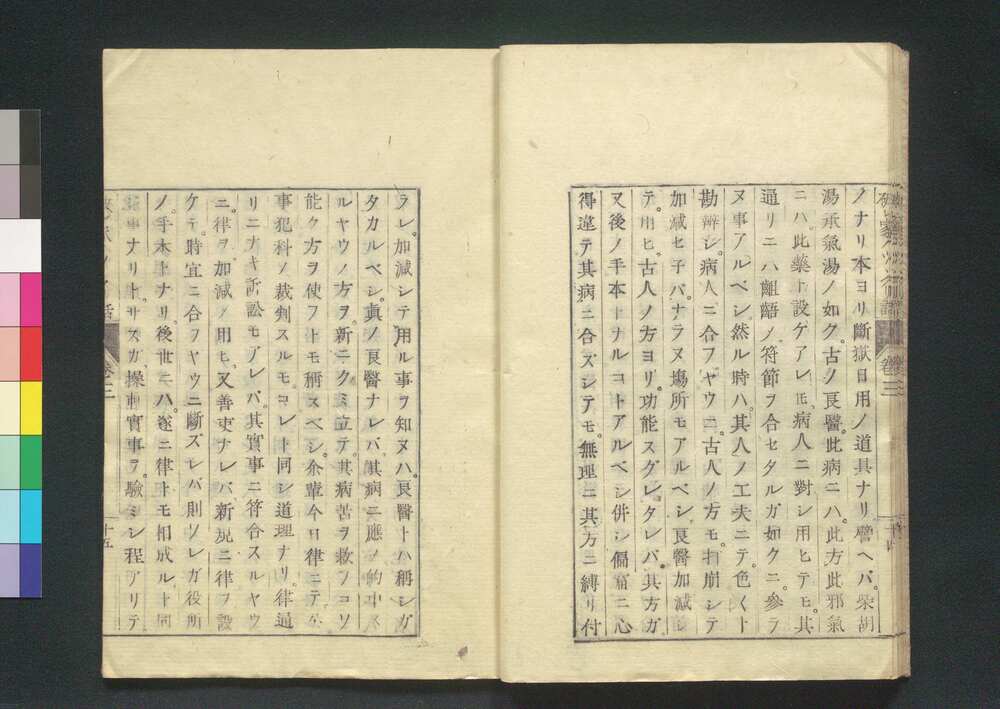 ノナリ本ヨリ斷獄日用ノ道具ナリ譬ヘバ柴胡
湯承氣湯ノ如ク古ノ良醫此病ニハ此方此邪氣
ニハ此藥ト設ケアレ𪜈病人ニ對シ用ヒテモ其
通リニハ齟齬ノ符節ヲ合セタルガ如クニ參ラ
ヌ事アルベシ然ル時ハ其人ノ工夫ニテ色〱ト
勘辨シ病人ニ合フヤウニ古人ノ方モ打崩シテ
加減セ子バナラヌ塲所モアルベシ良醫加減シ
テ用ヒ古人ノ方ヨリ功能スグレタレバ其方ガ
又後ノ手本トナルコトアルベシ併シ偏屈ニ心
得違テ其病ニ合ズシテモ無理ニ其方ニ縛リ付
卷三
ラレ加減シテ用ル事ヲ知ヌハ良醫トハ稱シガ
タカルベシ眞ノ良醫ナレバ其病ニ應シ的中ス
ルヤウノ方ヲ新ニクミ立テ其病苦ヲ救フコソ
能ク方ヲ使フトモ稱スベシ余輩今日律ニテ
事犯科ノ裁判スルモコレト同シ道理ナリ律通
リニナキ訴訟モアレバ其實事ニ符合スルヤウ
ニ律ヲ加減シ用ヒ又善吏ナレバ新規ニ律ヲ設
ケテ時宜ニ合フヤウニ斷ズレバ則ソレガ役所
ノ手本トナリ後世ニハ遂ニ律トモ相成ルト同
事ナリトサスガ操軒實事ヲ驗ミシ程アリテ
卷三
十五